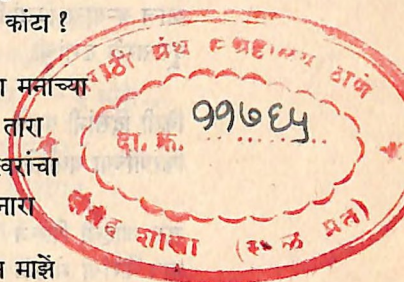 कांटा ?
मनाच्या
तारा
स्वरांचा
नारा
माझें
मराठी ग्रंथ संग्रहालय ठाणे
दा. क्र. ११७६५
संदर्भ शाखा (स्थळ प्रत)